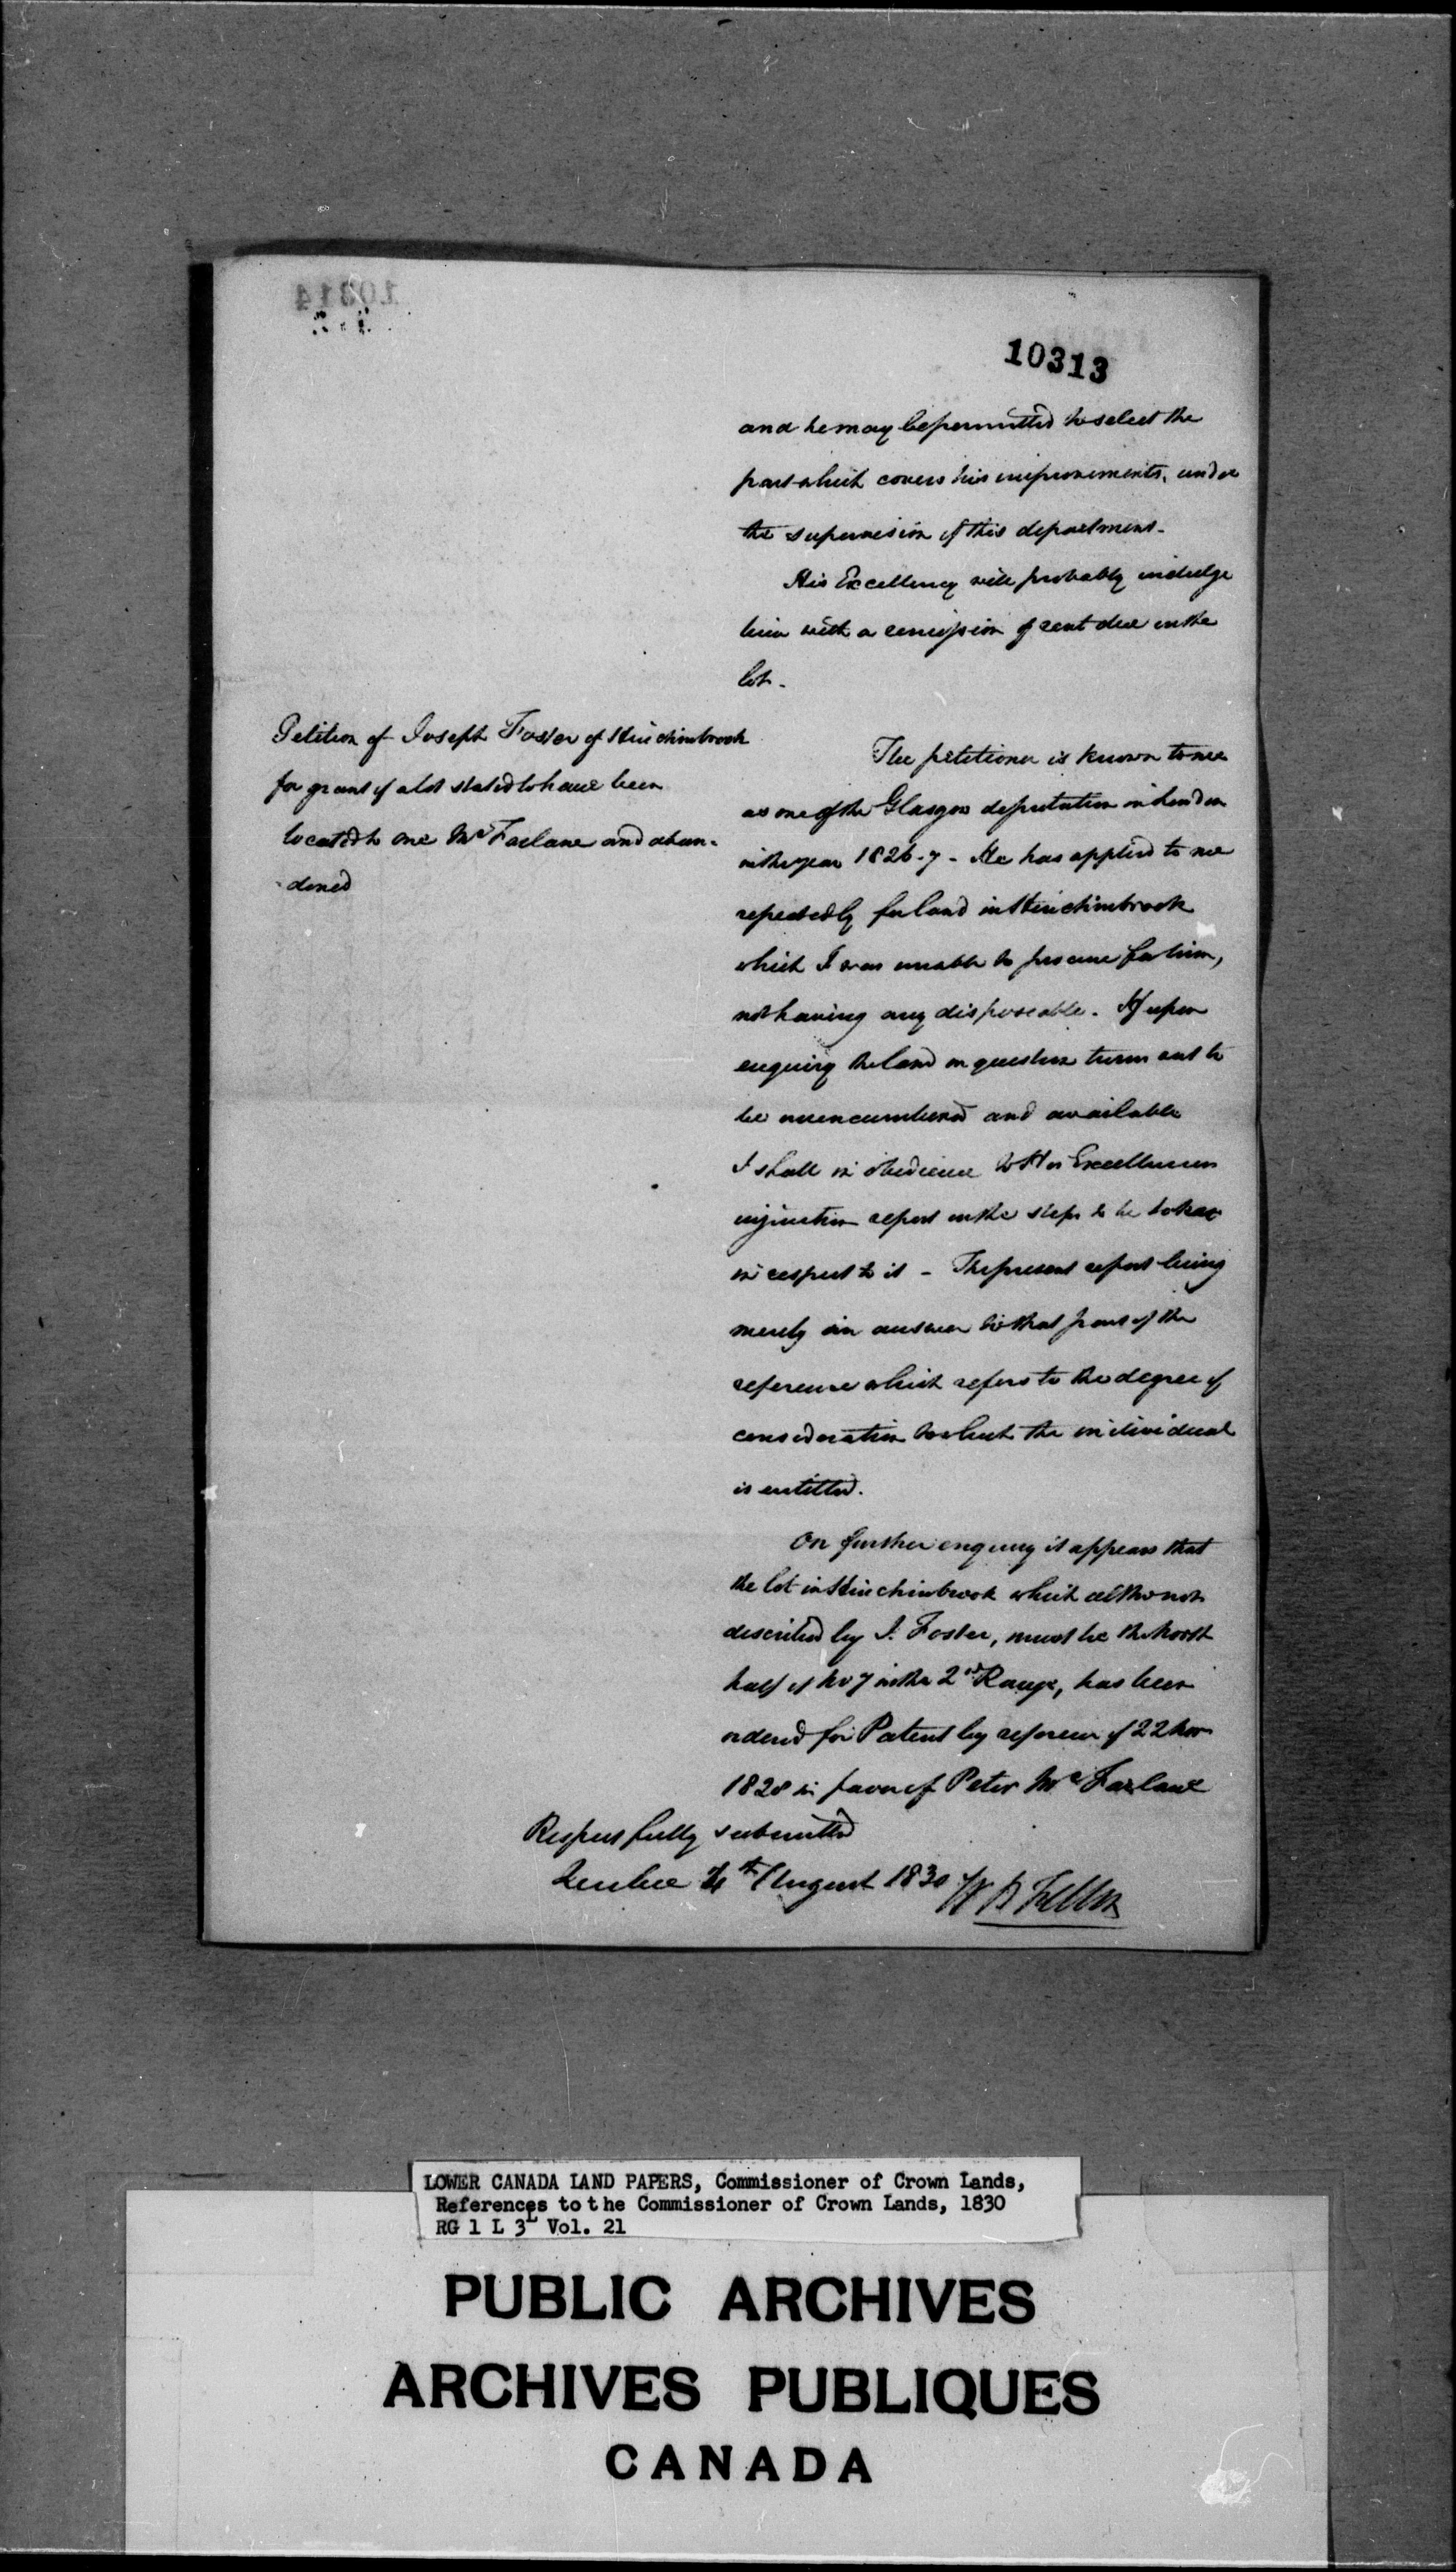 10314
10313
and he may be permitted to select the
part which covers his improvements, under
the supervision of this department.
His Excellency will probably indulge
him with a remission of rent due on the
lot.
Petition of Joseph Foster of Hinchinbrook
for grant of a lot stated to have been
located to one McFarlane and aban-
doned
The petitioner is known to me
as one of the Glasgow deputation in London
in the year 1826-7 - He has applied to me
repeatedly for land in Hinchinbrook
which I was unable to procure for him,
not having any disposeable. If upon
enquiry the land in question turns out to
be unencumbered and available
I shall in obedience to His Excellencies
injunction report on the steps to be taken
in respect to it - The present report being
merely an answer to that part of the
reference which refers to the degree of
consideration to which the individual
is entitled.
On further enquiry it appears that
the lot in Hinchinbrook which altho not
described by J. Foster, must be the North
half of No 7 in the 2nd Range, has been
ordered for Patent by reference of 22 Nov
1828 in favor of Peter McFarlane
Respectfully submitted
Quebec 4th August 1830 W B Felton
LOWER CANADA LAND PAPERS, Commissioner of Crown Lands,
References to the Commissioner of Crown Lands, 1830
RG 1 L 3L Vol. 21
PUBLIC ARCHIVES
ARCHIVES PUBLIQUES
CANADA